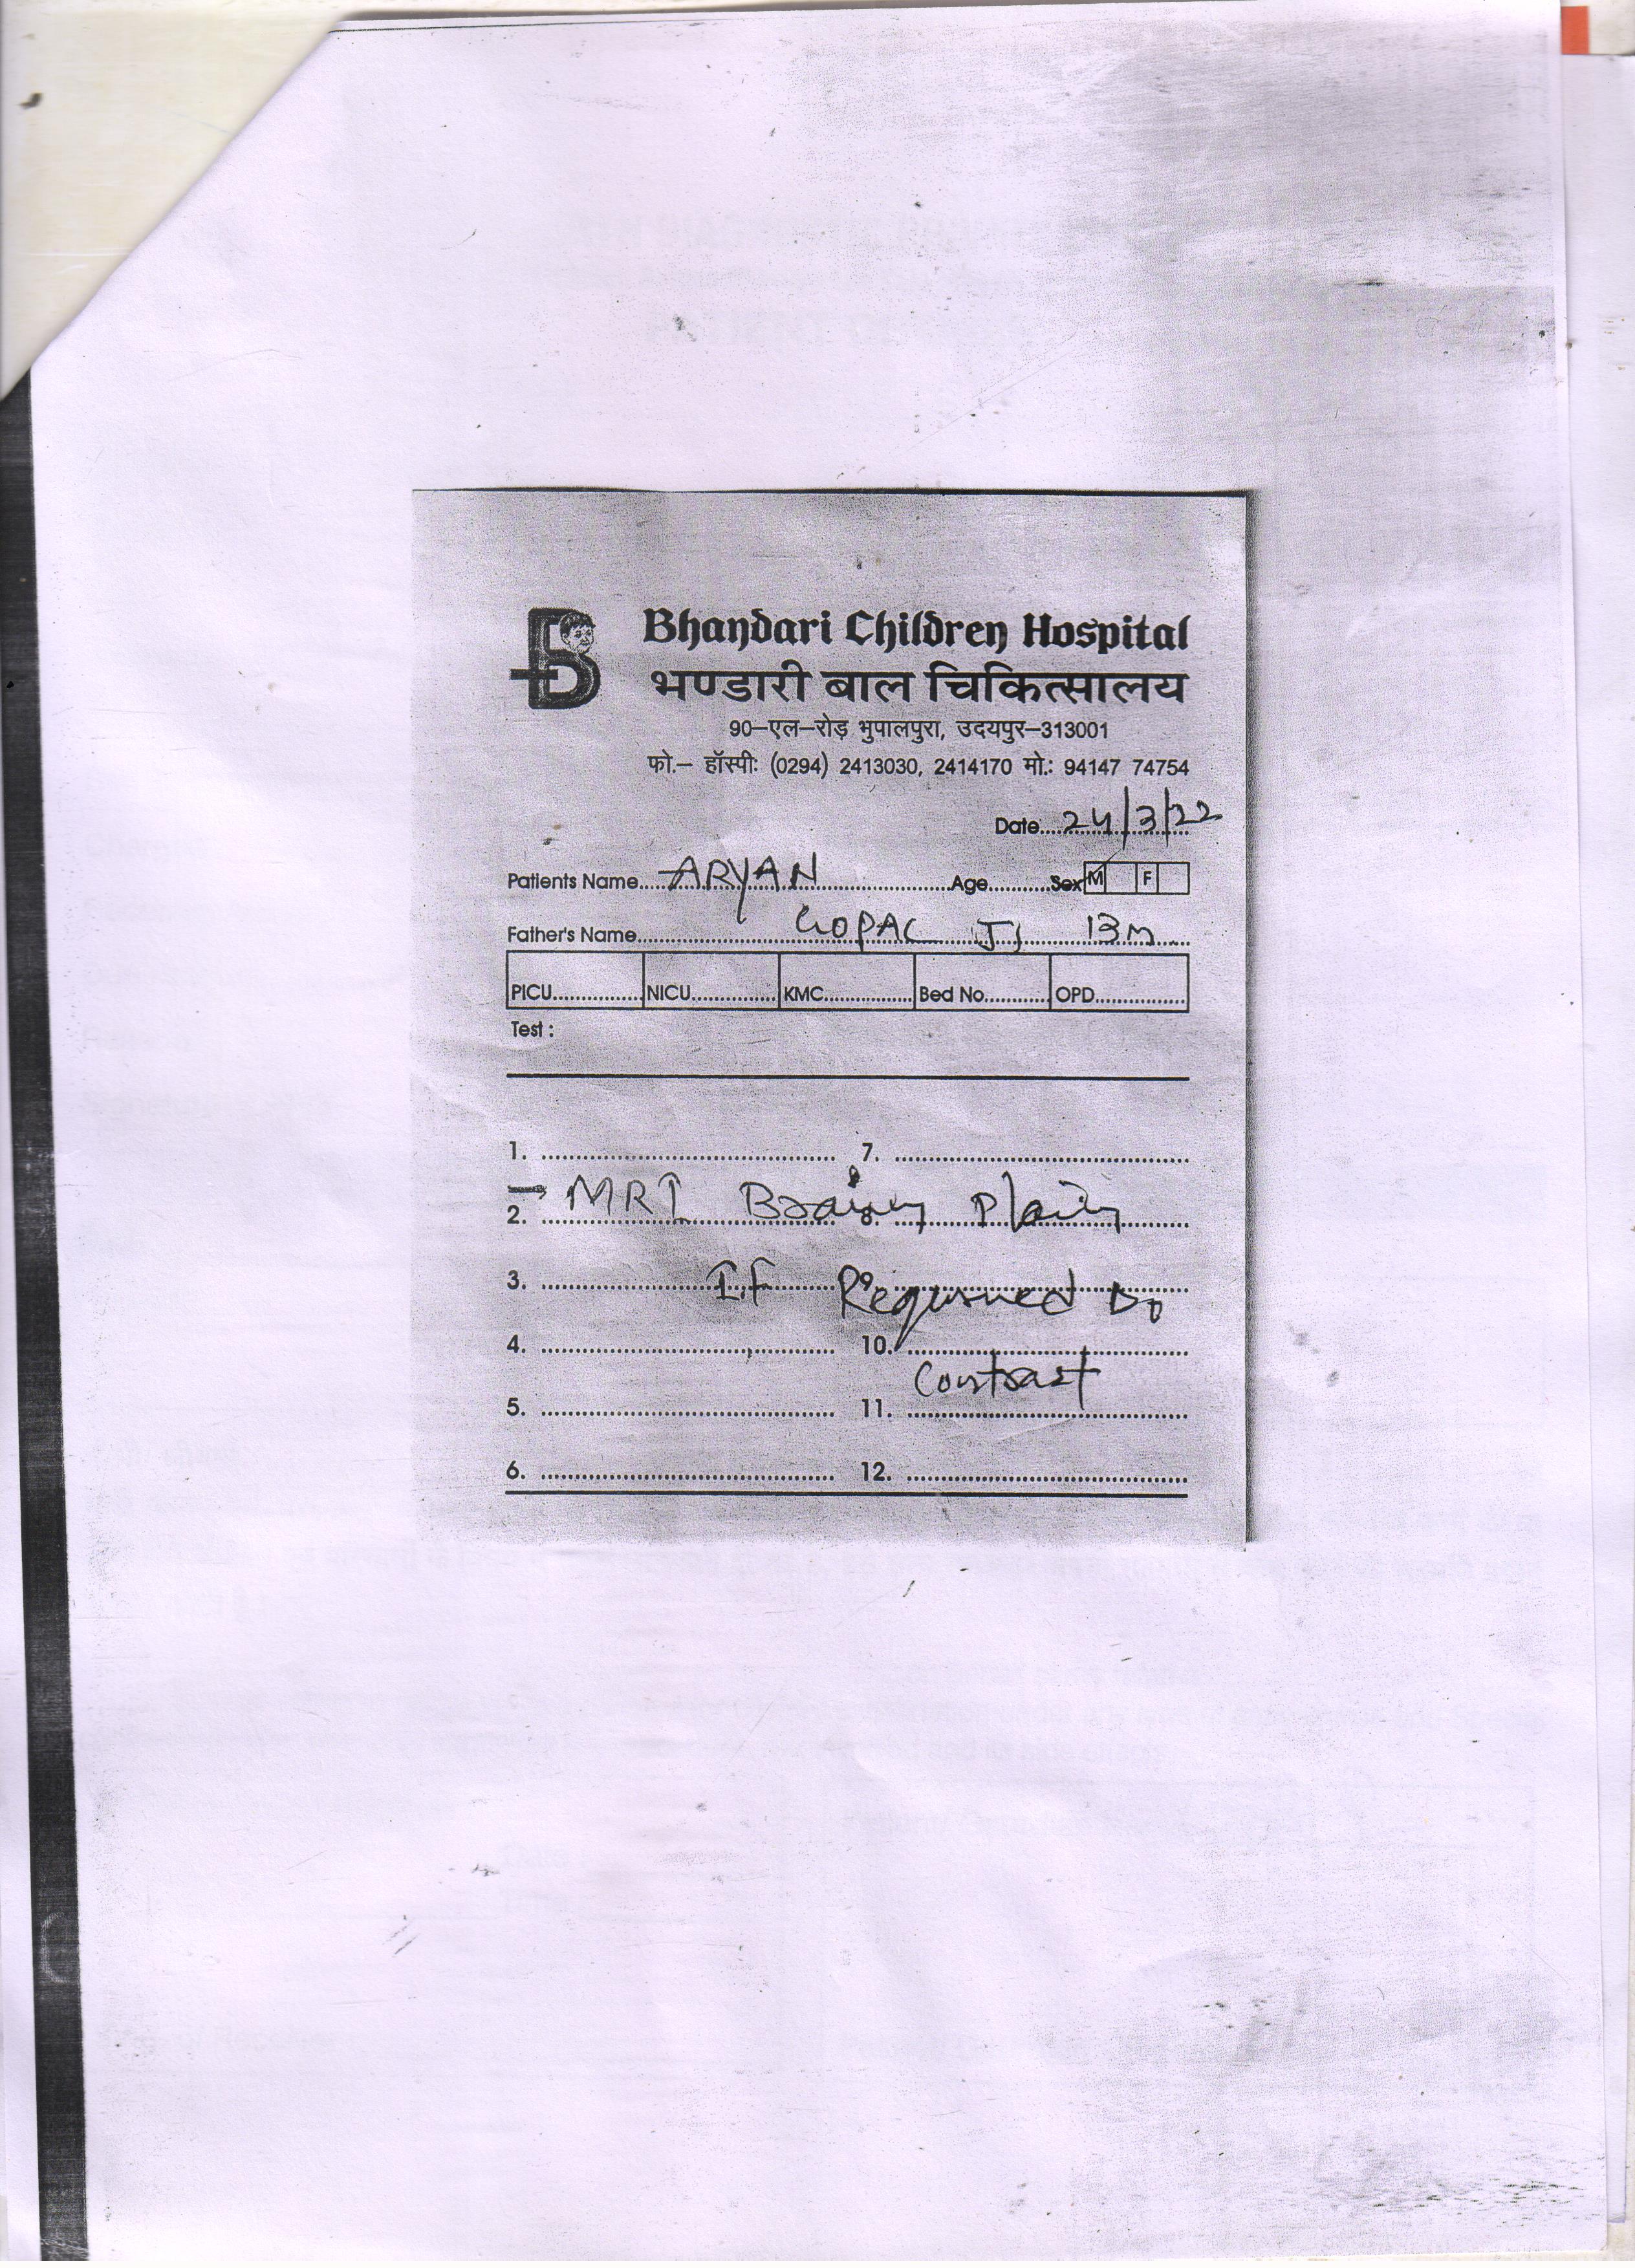 Bhandari Children Hospital
भण्डारी बाल चिकित्सालय
90–एल–रोड़ भुपालपुरा, उदयपुर–313001
फो.– हॉस्पी: (0294) 2413030, 2414170 मो.: 94147 74754
Date....24/3/22
Patients Name....ARYAN....Age....Sex M F
Father's Name....GOPAL JI 13m
PICU.... NICU.... KMC.... Bed No.... OPD....
Test :
1. .... 7. ....
2. MRI Brain 8. Plain
3. .... If 9. Required Do
4. .... 10. ....
Contrast
5. .... 11. ....
6. .... 12. ....